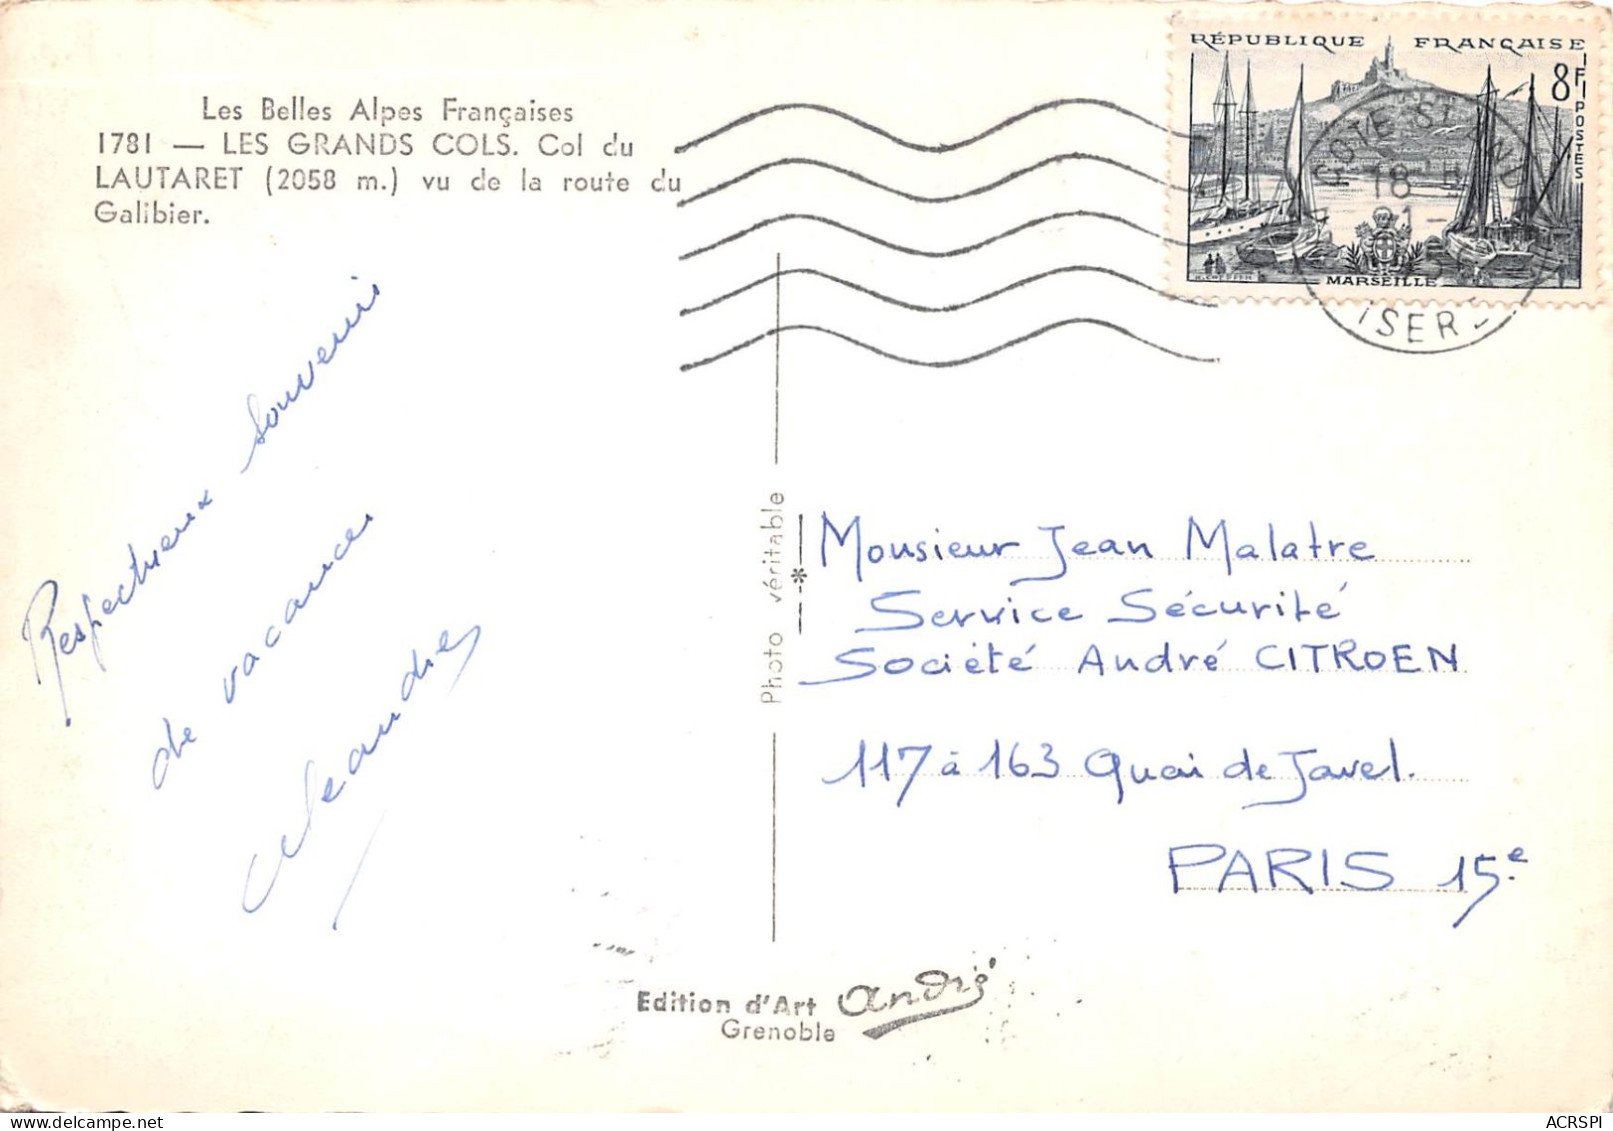 Les Belles Alpes Françaises
1781 — LES GRANDS COLS. Col du
LAUTARET (2058 m.) vu de la route du
Galibier.
RÉPUBLIQUE FRANÇAISE
8F
POSTES
MARSEILLE
18 H
21-
ISERE
Respectueux souvenirs
de vacances
Photo véritable
Monsieur Jean Malatre
Service Sécurité
Société André CITROEN
117 à 163 Quai de Javel.
PARIS 15e
Edition d'Art André
Grenoble
ACRSPI